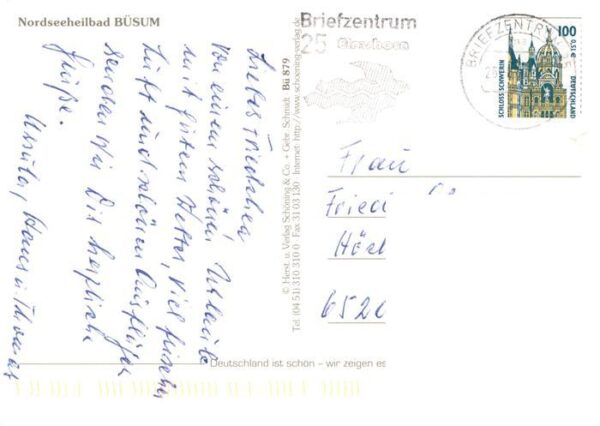 Nordseeheilbad BÜSUM
Liebes Friedchen
Von einem schönen Urlaub
mit gutem Wetter, viel frischer
Luft und schönen Ausflügen
senden wir Dir herzliche
Grüße.
Ursula, Hans u. Thomas
© Herst. u. Verlag Schöning & Co. + Gebr. Schmidt Bü 879
Tel. (04 51) 310 310-0 · Fax 31 03 130 Internet: http://www.schoening-verlag.de
Briefzentrum
25
BRIEFZENTR
100
0,51 €
SCHLOSS SCHWERIN
DEUTSCHLAND
Frau
Fried
Hörl
6520
Deutschland ist schön – wir zeigen es